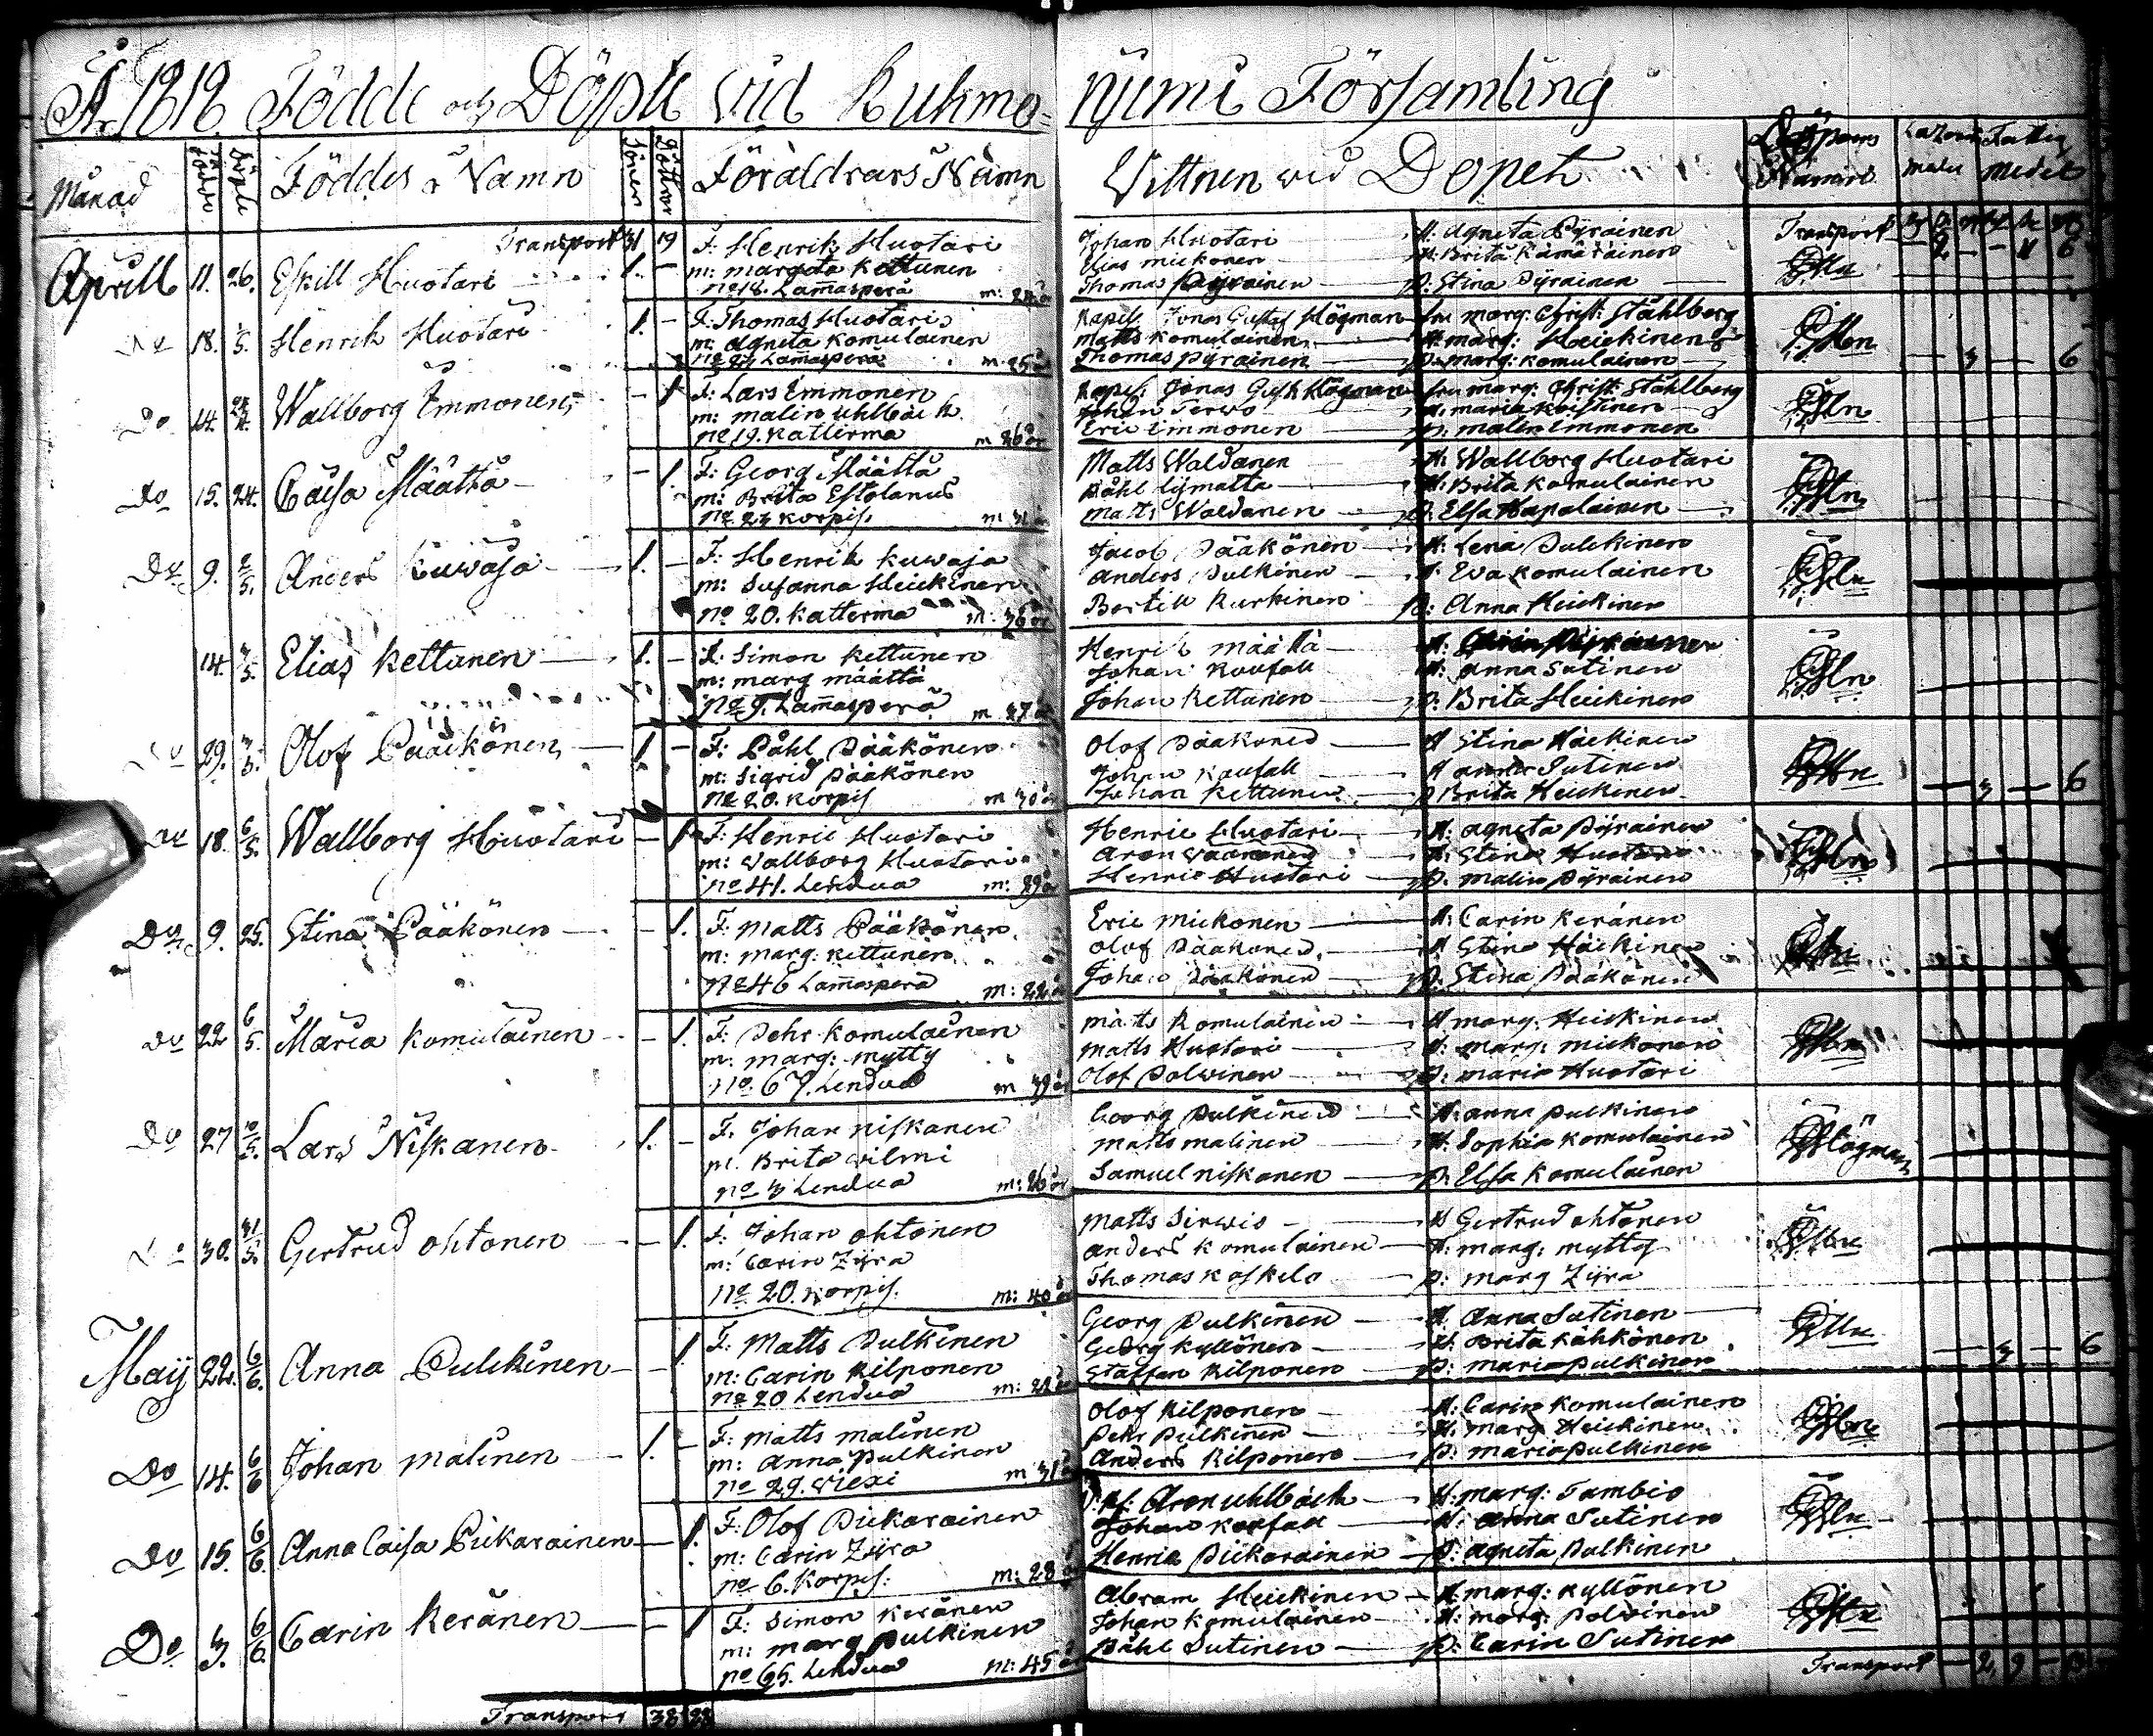 År 1818. Födde och Döpte vid Kuhmo= njemi Församling
Månad Födde Döpte Föddes Namn Söner Döttrar Föräldrars Namn Vittnen vid Dopet Döpares Namn Medel
Transport 31 19 F: Henrik Huotari Johan Huotari H. Agneta Pyrainen Transport
Aprill 11. 26. Eskill Huotari 1. — m: margeta Kettunen Elias mickonen H: Brita Kämäräinen 2 6
No 18. Lamaspera m: Thomas Pyrainen P: Stina Pyrainen
F: Thomas Huotari Kapell. Jonas Gustaf Högman fru marg: Christ: Ståhlberg
Do 18. /5. Henrik Huotari 1. — m: Agneta Komulainen Matts Komulainen H: marg: Heickinen
Lamaspera m: 25 år Thomas Pyrainen P: marg: Komulainen 3 — 6
Do 14. Wallborg Immonen — 1 F: Lars Immonen Kapell: Jonas Gust Högman fru marg: Christ: Ståhlberg
m: malin Uhlback Johan Terwo H: maria Koistinen
No 19. Katterma m 26 år Eric Immonen P: malin Immonen
Do 15. 24. Caisa Määttä — 1. F: Georg Määttä Matts Waldanen H: Wallborg Huotari
m: Brita Estolanus Påhl Lijmatta H: Brita Komulainen
No 23 Korpis. Matts Waldanen P: Elsa Hapalainen
Do 9. 2/5. Anders Kuwaja 1. — F: Henrik Kuwaja Jacob Pääkönen H: Lena Pulckinen
m: Susanna Heickinen Anders Pulkinen H: Eva Komulainen
No 20. Katterma m: 36 år Bertill Kurkinen P: Anna Heickinen
14. 3/5. Elias Kettunen 1. — F: Simon Kettunen Henrik Määttä
m: marg Määttä Johan Kaufall H: Anna Sutinen
No 9. Lamaspera Johan Kettunen P: Brita Heickinen
Do 29. Olof Pääkönen 1 — F: Påhl Pääkönen Olof Pääkönen H Stina Häckinen
m: Sigrid Pääkönen Johan Kaufall H Anna Sutinen
No 20. Korpis m 30 år Johan Kettunen P Brita Heickinen — 3 — 6
Do 18. 6/5. Wallborg Huotari — 1 F: Henric Huotari Henric Huotari H: Agneta Pyrainen
m: Wallborg Huotari Aron Väänänen H: Stina Huotari
No 41. Lendua m: 29 år Henric Huotari P: Malin Pyrainen
Do 9. 25. Stina Pääkönen — 1. F: Matts Pääkönen Eric Mickonen H: Carin Keränen
m: marg: Kettunen Olof Pääkönen H Stina Häckinen
No 46 Lamaspera m: 22 år Johan Pääkönen P: Stina Pääkönen
Do 22 6/5. Maria Komulainen — 1. F: Pehr Komulainen Matts Komulainen H marg: Heickinen
m: marg: mytty Matts Huotari H: marg: mickonen
No. 67. Lendua m 39 år Olof Polvinen P: maria Huotari
Do 27 10/5. Lars Niskanen 1. — F: Johan Niskanen Georg Pulkinen H: Anna Pulkinen
m. Brita Vilmi Matts Malinen H: Sophia Komulainen Högman
No 3 Lendua m: 26 år Samuel Niskanen P: Elsa Komulainen
Do 30. 31/5. Gertrud Ohtonen — 1. F: Johan Ohtonen Matts Sirwio H Gertrud Ohtonen
m: Carin Zijra Anders Komulainen H: marg: mytty
No 20. Korpis. m: 40 år Thomas Koskelo P: marg Zijra
Maij 22. 6/6. Anna Pulckinen — 1 F: Matts Pulkinen Georg Pulkinen H Anna Sutinen
m: Carin Kilponen Georg Kyllönen H: Brita Kähkönen
No 20 Lendua Staffan Kilponen P: maria Pulkinen — 3 — 6
Do 14. 6/6 Johan Malinen 1. — F: Matts Malinen Olof Kilponen H: Carin Komulainen
m: Anna Pulkinen Pehr Pulkinen H: marg Heickinen
No 29. Viexi m 31 Anders Kilponen P: maria Pulkinen
Do 15. 6/6. Anna Caisa Piikarainen — 1. F: Olof Piikarainen Aron Uhlback H: marg: Tambio
m: Carin Zijra Johan Kaufall H: Anna Sutinen
No 6. Korpis: m: 28 Henric Piikarainen P: Agneta Pulkinen
Do 3. 6/6. Carin Keränen — 1 F: Simon Keränen Abram Heickinen H marg: Kyllönen
m: marg Pulkinen Johan Komulainen H: marg: Polvinen
No 65. Lendua m: 45 Påhl Sutinen P: Carin Sutinen
Transport 38 28 Transport